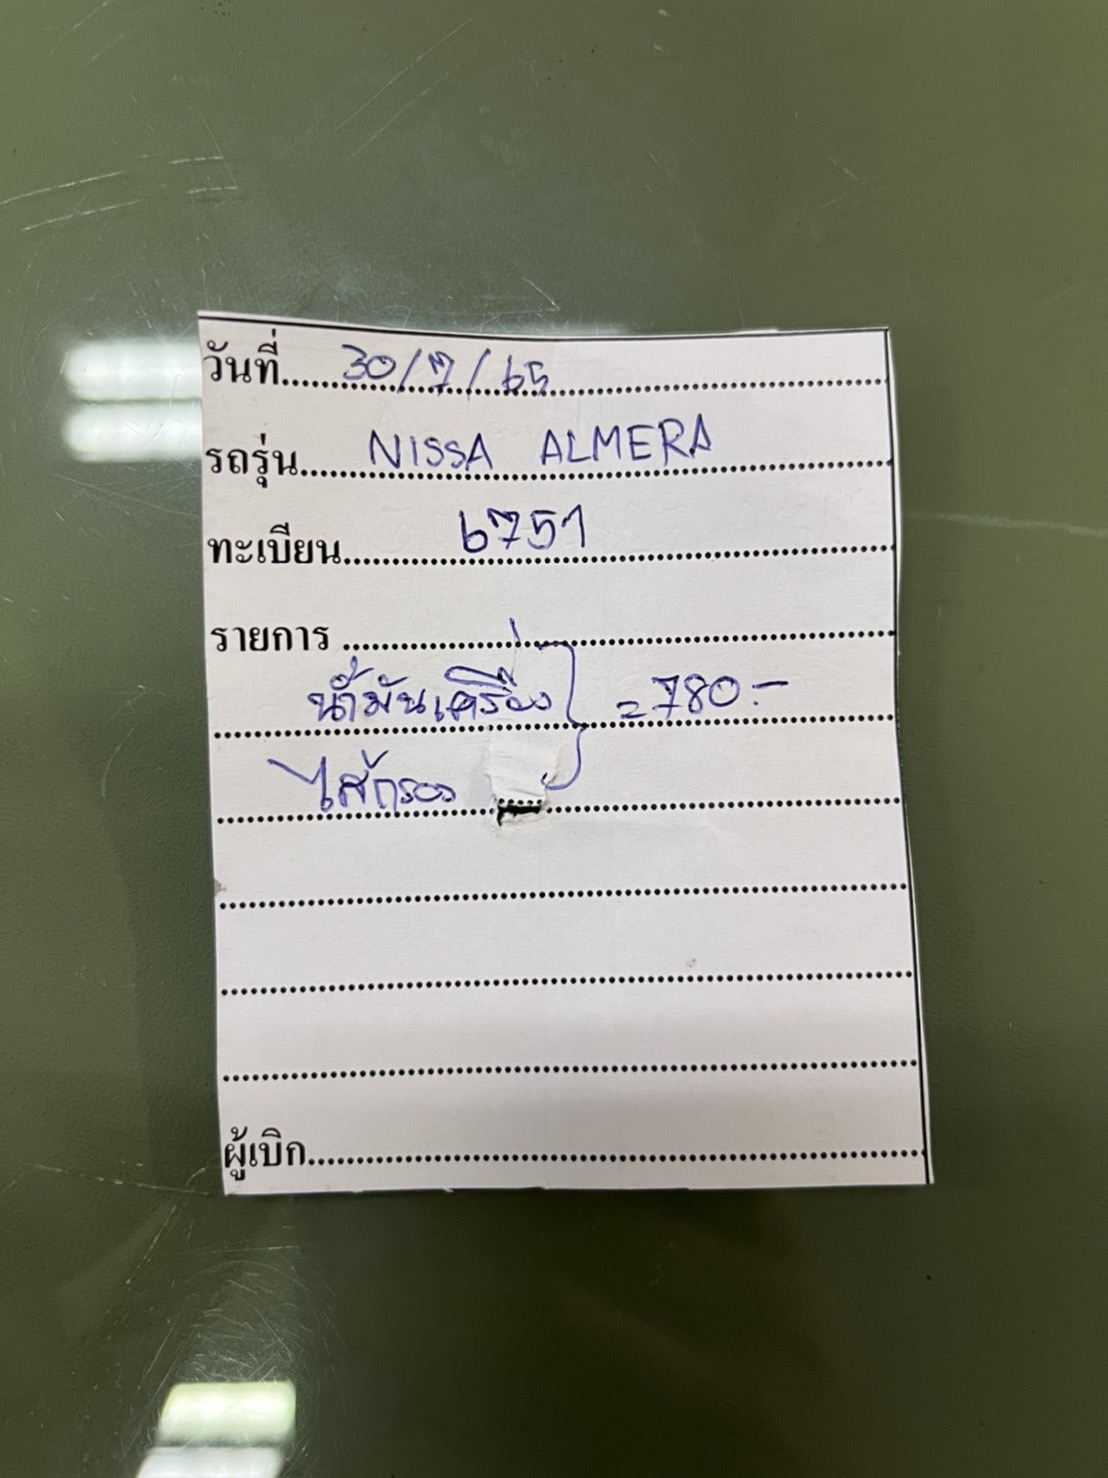 วันที่ 30/7/65
รถรุ่น NISSA ALMERA
ทะเบียน 6751
รายการ
น้ำมันเครื่อง = 780.-
ไส้กรอง
ผู้เบิก